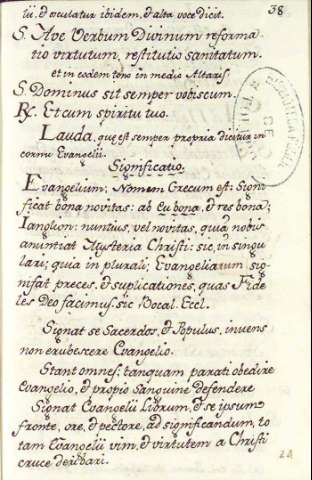 38
lii, et osculatur ibidem, et alta voce dicit.
S. Ave Verbum Divinum reforma
tio virtutum, restitutio sanitatum.
et in eodem tono in medio Altaris
S. Dominus sit semper vobiscum.
R. Et cum spiritu tuo.
Lauda, que est semper propria dicitur in
cornu Evangelii.
Significatio.
Evangelium; Nomem Grecum est: Signi
ficat bona novitas: ab Eu bona, et res bona;
Ianglion: nuntius, vel novitas, quia nobis
anuntiat Mysteria Christi: sic, in singu
lari; quia in plurali; Evangeliarum sig
nifat preces, et suplicationes, quas Fide
les Deo facimus. sic Vocal. Eccl.
Signat se Sacerdos, et Populus, inuens
non erubescere Evangelio.
Stant omnes; tanquam parati obedire
Evangelio, et propio Sanguine defendere
Signat Evangelii Librum, et se ipsum
fronte, ore, et pectore, ad significandum, to
tam Evangelii vim, et virtutem a Christi
cruce deribari.